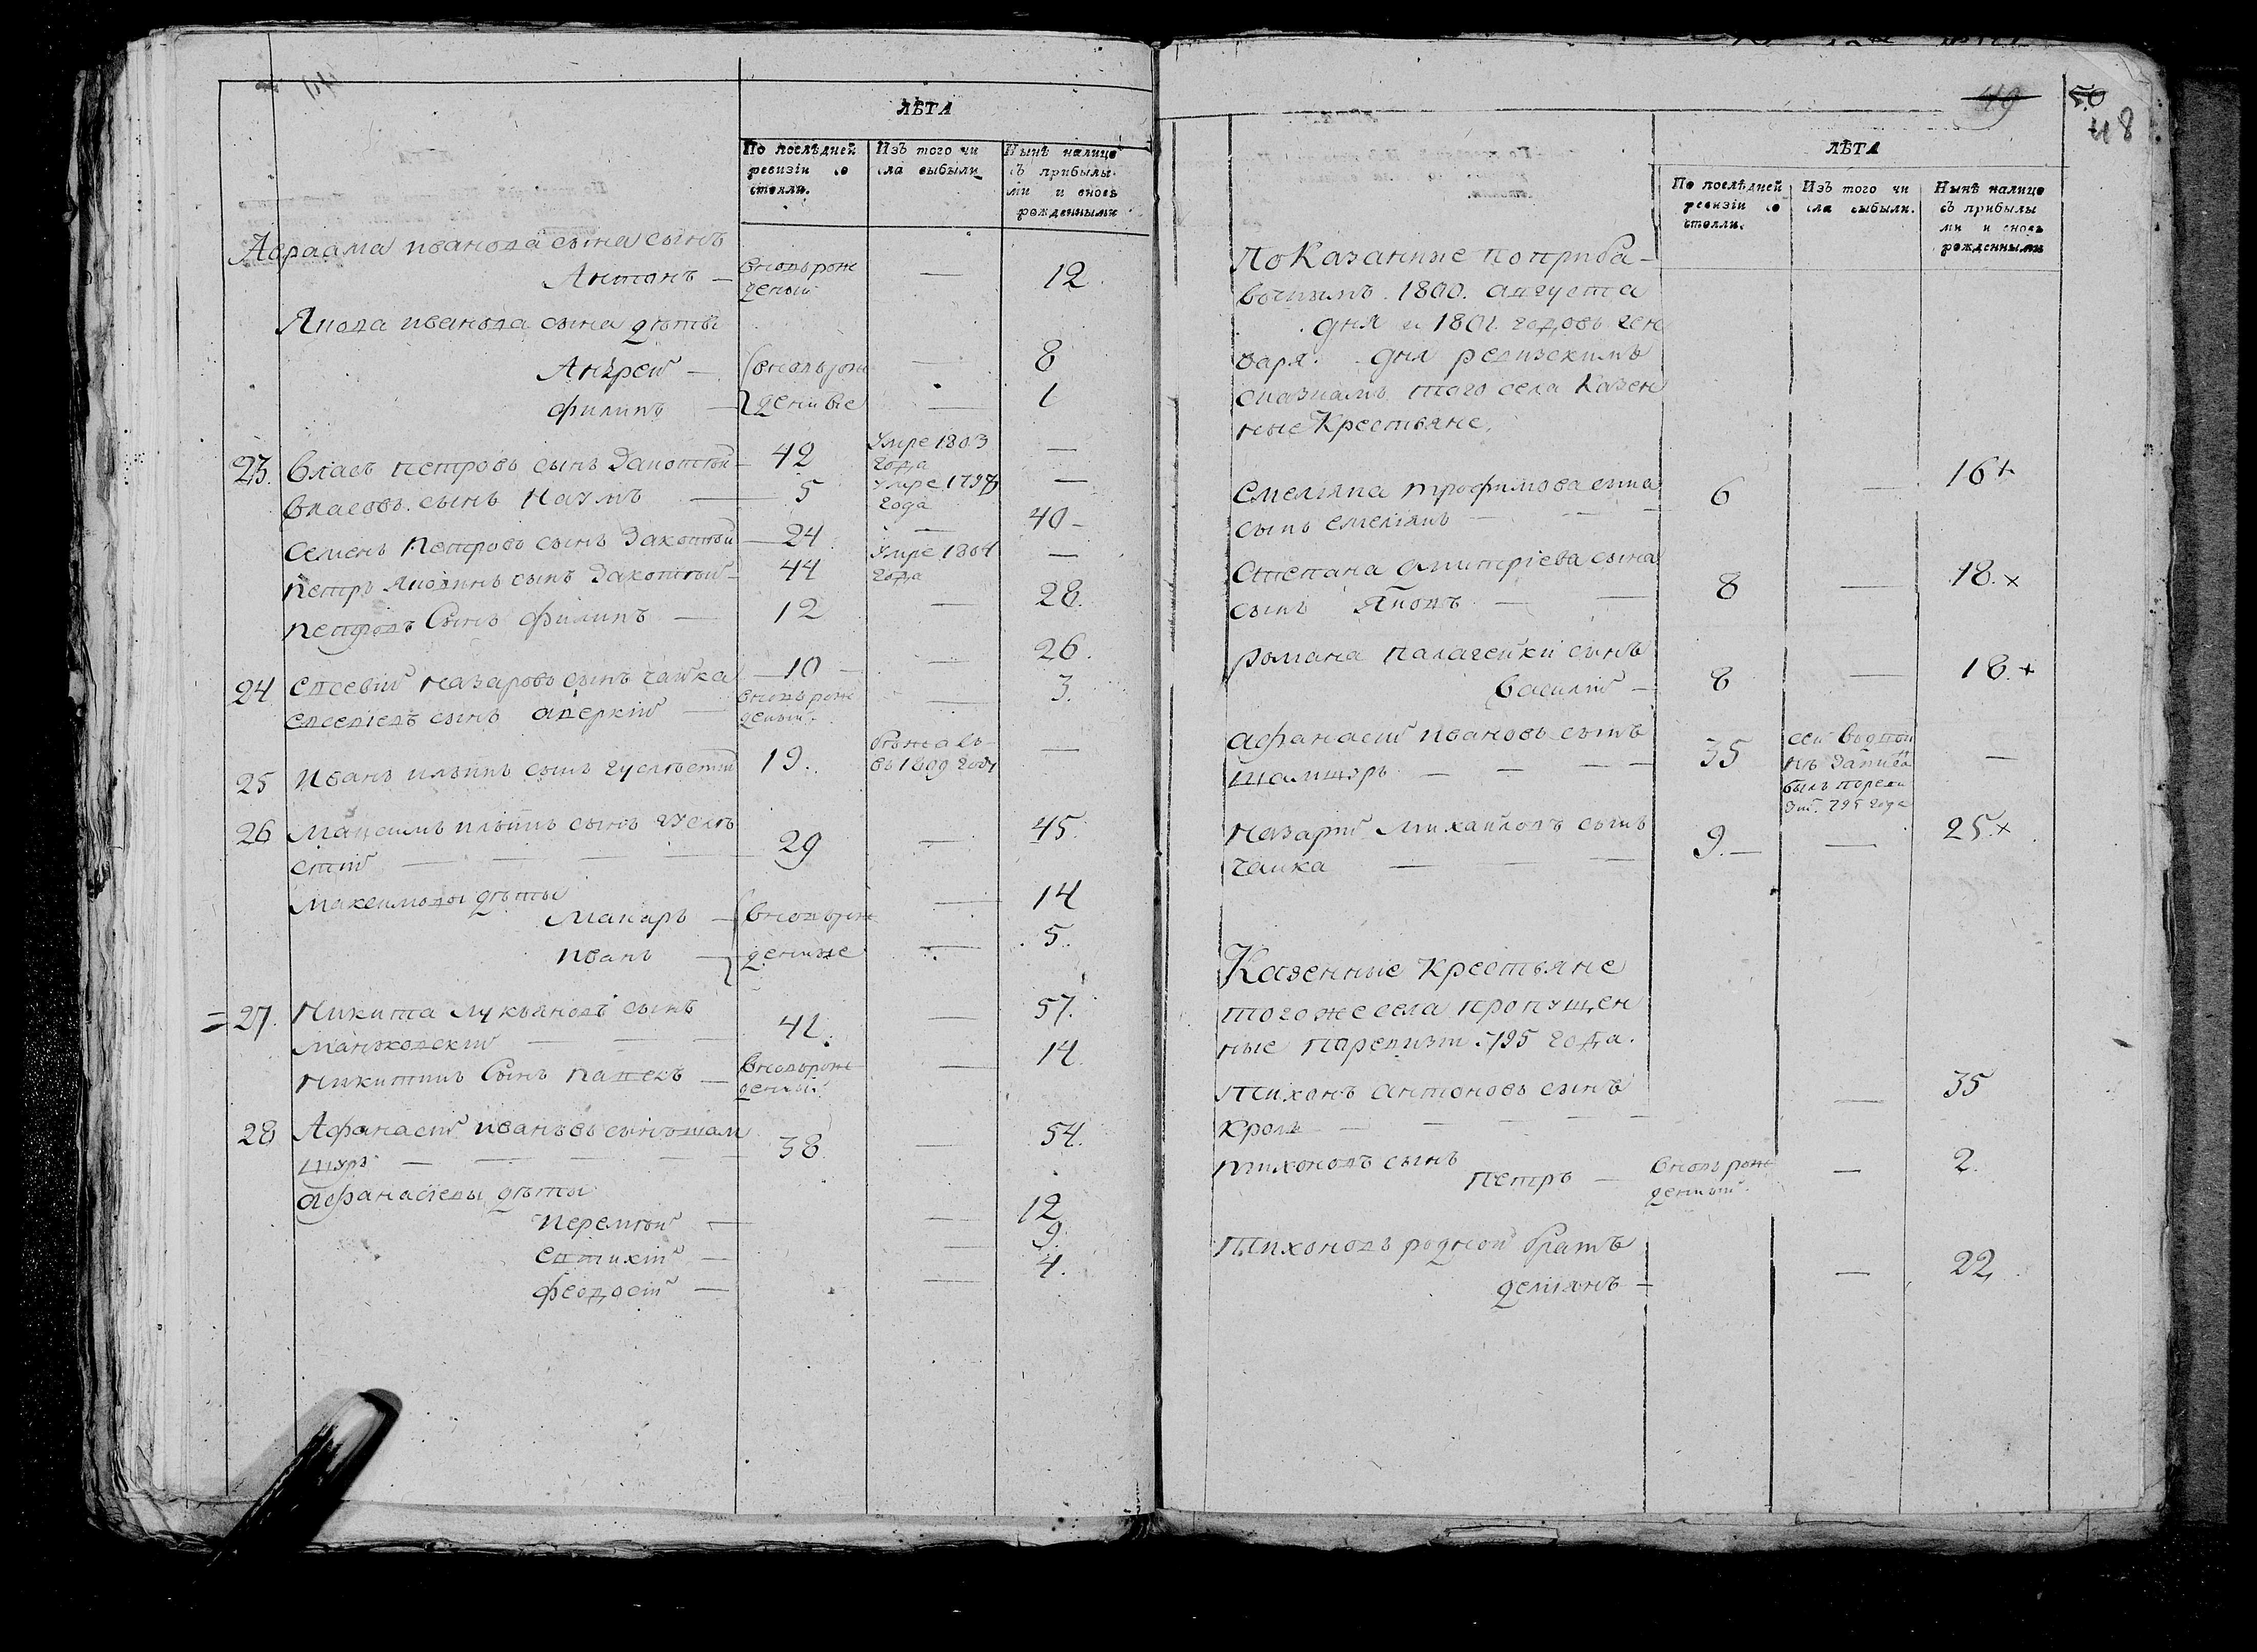 ЛѢТА
По послѣдней ревизіи со стояли.
Изъ того чи сла выбыли
Нынѣ налице съ прибылы ми и вновь рожденными
Авраама иванова сына сынъ
Антонъ — вновь рож деный — 12.
Якова иванова сына дѣти
Андрей — вновь рож — 8
филипъ — денные — 1
23. Власъ петровъ сынъ — 42 Умре 1803 года —
власовъ сынъ наумъ — 5 Умре 1798 года —
Семенъ Петровъ сынъ — 24 — 40 —
петръ яковлинъ сынъ — 44 Умре 1804 года —
петровъ Сынъ филипъ — 12 — 28.
24 евсевій назаровъ сынъ чайка — 10 — 26.
евсевіевъ сынъ аверкій — вновь рож деный — 3.
25 Иванъ ильинъ сынъ — 19. бѣжалъ въ 1809 году —
26 Максимъ ильинъ сынъ
— 29 — 45.
Максимовы дѣти
Макаръ — вновь рож — 14
иванъ — денные — 5.
27. Никита лукьяновъ сынъ
— 41. — 57.
Никитинъ Сынъ павелъ — вновь рож денный — 14.
28 Афанасій ивановъ сынъ шам
шуръ — 38 — 54.
афанасіевы дѣти
— 12
евтихій — 9.
феодосій — 4.
49 50
48
ЛѢТА
По послѣдней ревизіи со стояли.
Изъ того чи сла выбыли.
Нынѣ налице съ прибылы ми и вновь рожденными
Показанные по приба-
вочнымъ 1800. августа
дня и 1801. годовъ ген
варя. дня ревизскимъ
сказкамъ того села Казен
ные Крестьяне.
Емеліяна трофимова сына
сынъ емеліянъ — 6 — 16 +
Степана дмитріева сына
сынъ Яковъ — 8 — 18. х
романа палагейки сынъ
василій — 8 — 18. +
афанасій ивановъ сынъ
шамшуръ — 35
—
Назарій Михайловъ сынъ
чайка — 9. — 25. х
Казенные крестьяне
того же села пропущен
ные по ревизіи 795 года.
тихонъ антоновъ сынъ
кроль — 35
тихоновъ сынъ
петръ — вновь рож денный — 2.
тихоновъ родной братъ
деміянъ — 22,